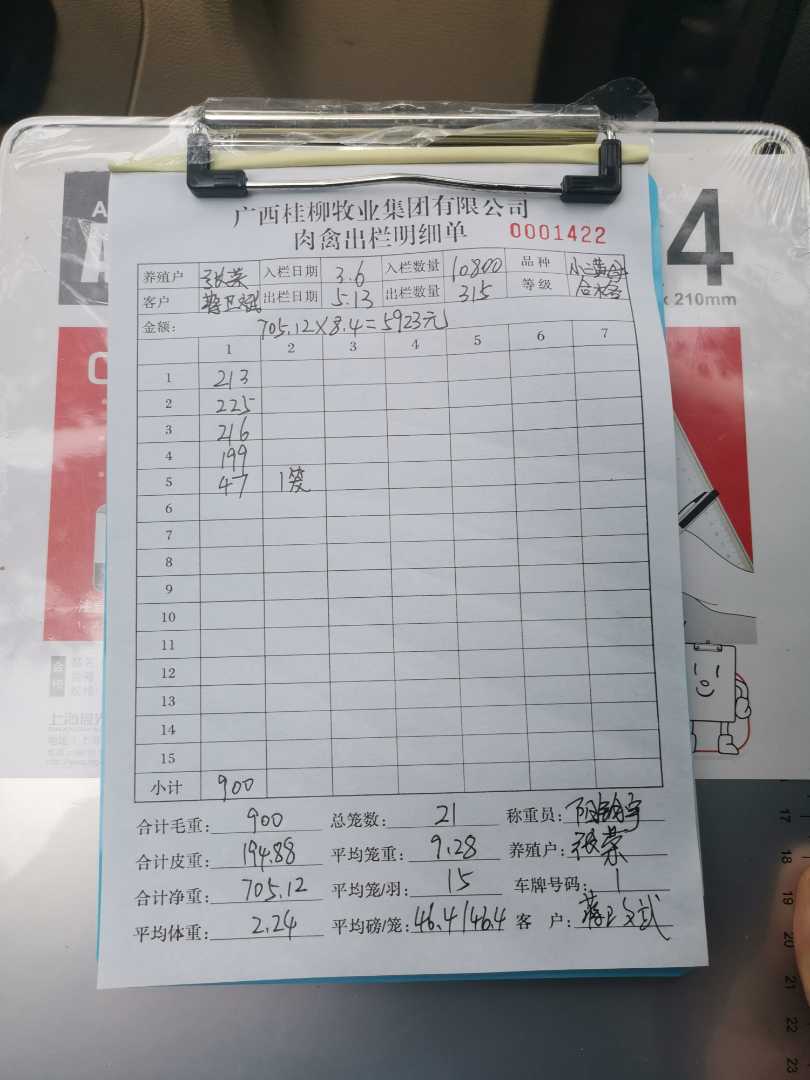 广西桂柳牧业集团有限公司
肉禽出栏明细单 0001422
养殖户 张荣 入栏日期 3.6 入栏数量 10800 品种
客户 出栏日期 5.13 出栏数量 315 等级 合格
金额: 705.12×8.4=5923元
1 2 3 4 5 6 7
1 213
2 225
3 216
4 199
5 47 1笼
6
7
8
9
10
11
12
13
14
15
小计 900
合计毛重: 900 总笼数: 21 称重员:
合计皮重: 194.88 平均笼重: 9.28 养殖户: 张荣
合计净重: 705.12 平均笼/羽: 15 车牌号码: 1
平均体重: 2.24 平均磅/笼: 46.4/46.4 客 户:
4
x 210mm
17
18
19
20
21
22
23